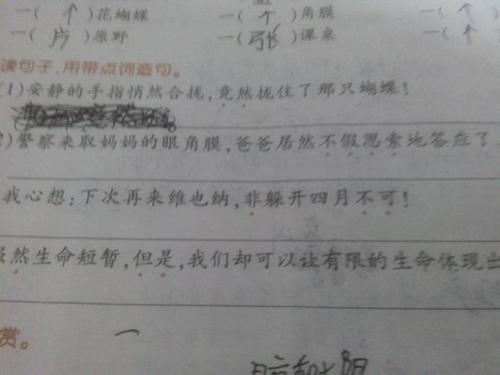 一(个)花蝴蝶 一(个)角膜 一(个
一(片)原野 一(张)课桌 一(
读句子,用带点词造句。
(1)安静的手指悄然合拢,竟然拢住了那只蝴蝶!
2)警察来取妈妈的眼角膜,爸爸居然不假思索地答应了
我心想:下次再来维也纳,非躲开四月不可!
虽然生命短暂,但是,我们却可以让有限的生命体现出
赏。
一